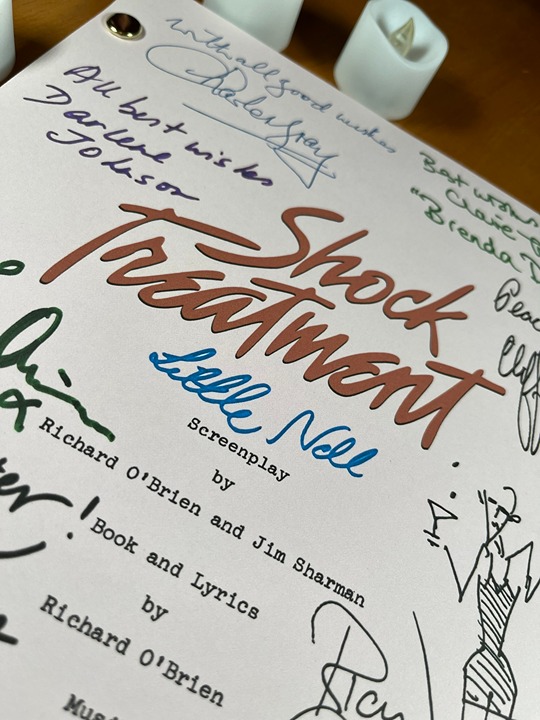 with all good wishes
Charles Gray
All best wishes
Darlene
Johnson
Best wishes
Claire
"Brenda D
Peac
Cliff
Shock
Treatment
Little Nell
Screenplay
by
Richard O'Brien and Jim Sharman
Book and Lyrics
by
Richard O'Brien
Mus